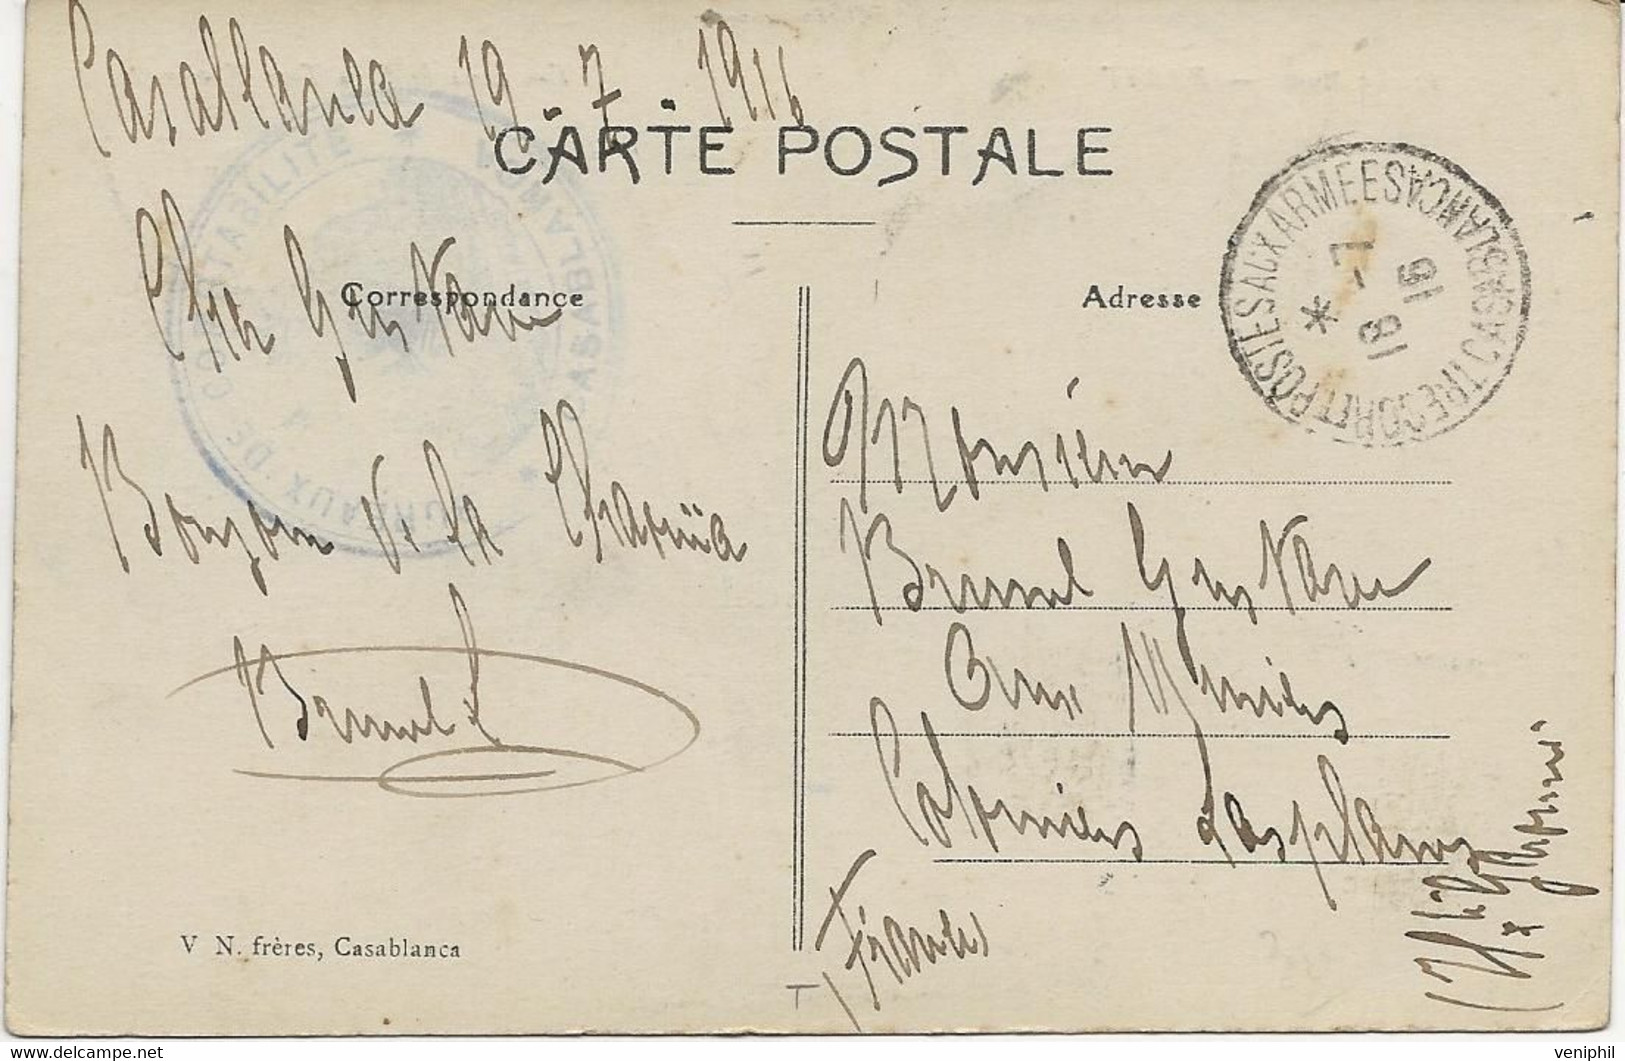 Casablanca 19-7-1916
CARTE POSTALE
Cher Gustave
Correspondance
Adresse
Bonjour de la Chaouïa
Brunel
BUREAUX DE COMPTABILITE * CASABLANCA *
TRESOR ET POSTES AUX ARMEES CASABLANCA
* 18 -7 16
Monsieur
Brunel Gustave
aux Mines
Colonies
France
V N. frères, Casablanca
veniphil